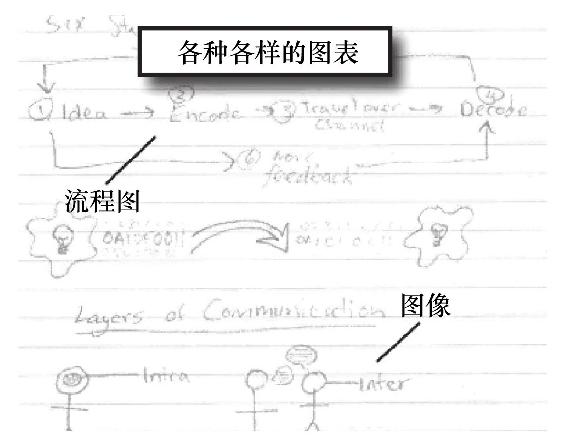 Six
各种各样的图表
① Idea → ② Encode → ③ Travel over Channel → ④ Decode
⑥ feedback
流程图
Layers of Communication
图像
Intra
Inter